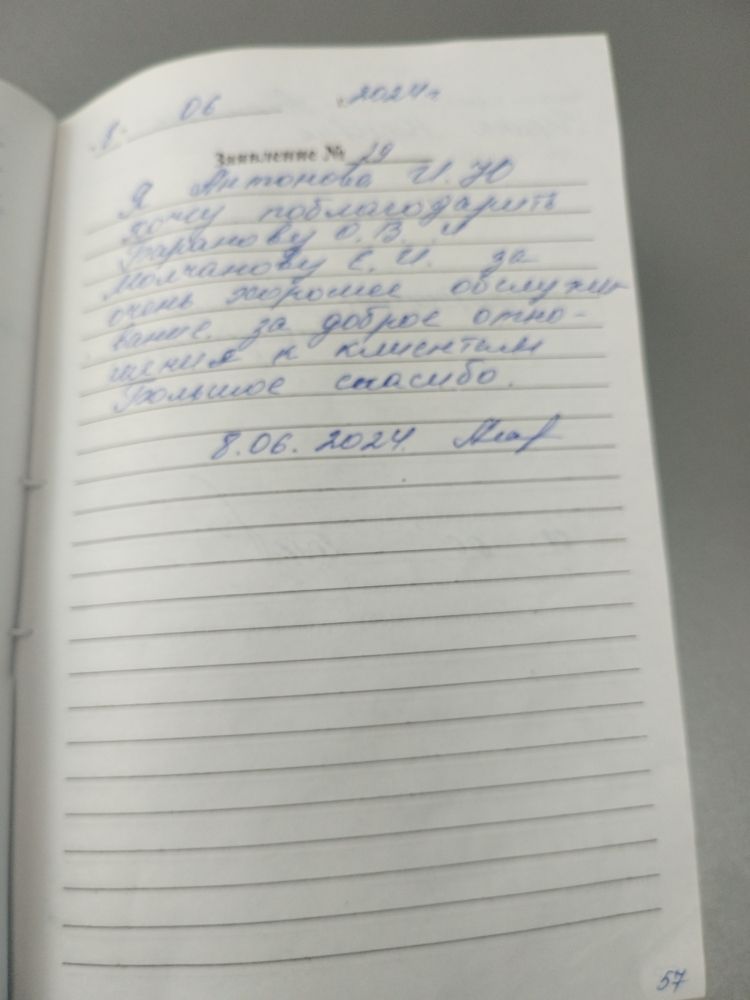 8. 06 2024г
Заявление № 29
Я Антонова И. Ю
хочу поблагодарить
Баранову О. В. и
Молчанову Е. И. за
очень хорошее обслужи-
вание. за доброе отно-
шения к клиентам
Большое спасибо.
8.06.2024.
57